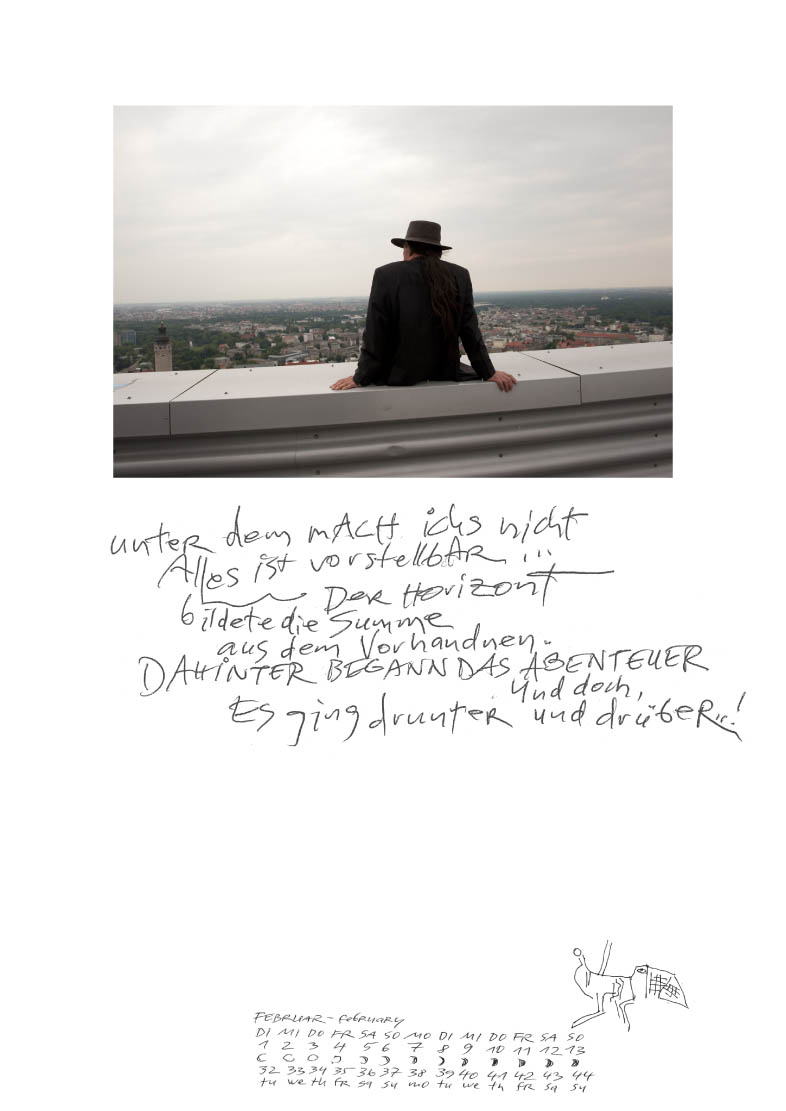 unter dem mACH ichs nicht
Alles ist vorstellbAR ...
Der Horizont
bildete die Summe
aus dem Vorhandnen.
DAHINTER BEGANN DAS ABENTEUER
Und doch,
Es ging drunter und drüber...!
FEBRUAR - February
DI MI DO FR SA SO MO DI MI DO FR SA SO
1 2 3 4 5 6 7 8 9 10 11 12 13
32 33 34 35 36 37 38 39 40 41 42 43 44
tu we th fr sa su mo tu we th fr sa su